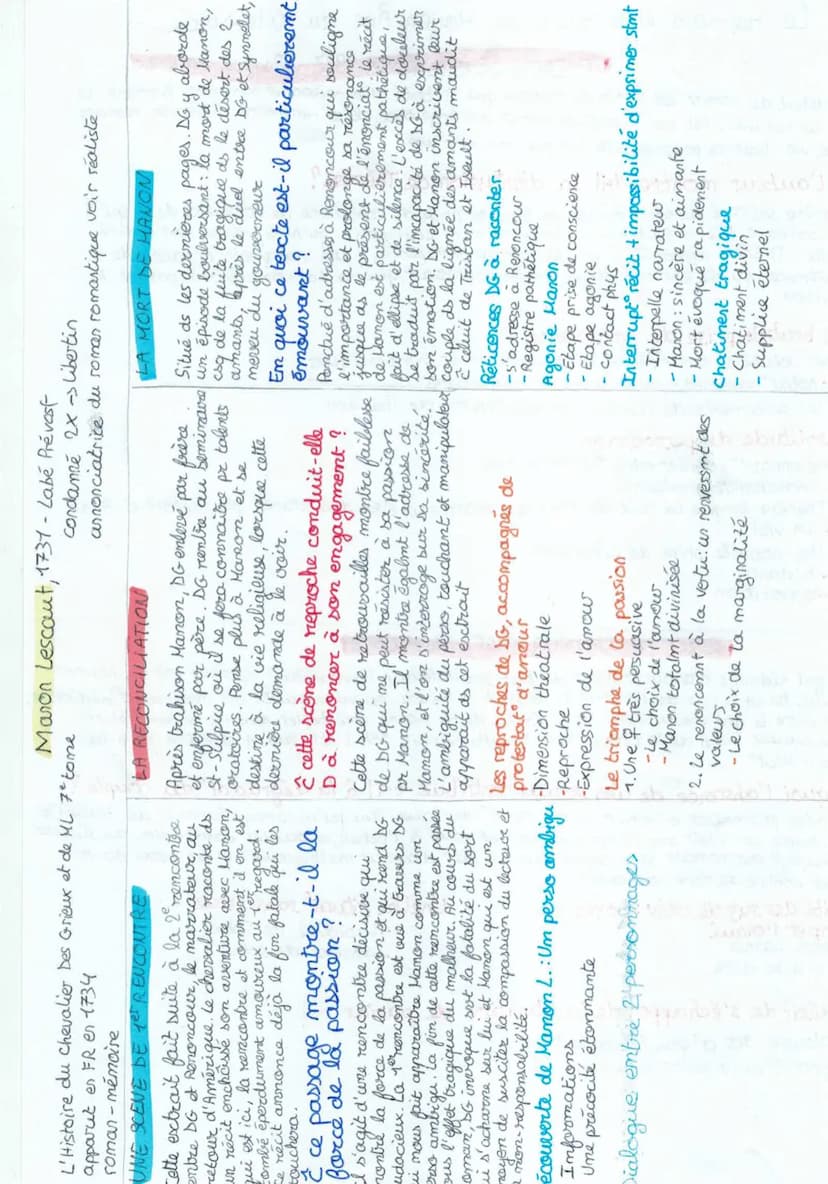 Manon Lescaut, 1731 - L'abé Prévost
L'Histoire du Chevalier Des Grieux et de ML : 7e tome
apparut en FR en 1734
roman-mémoire
Condamné 2x → Libertin
annonciatrice du roman romantique voir réaliste
UNE SCENE DE 1er RENCONTRE
Cette extrait fait suite à la 2e rencontre
entre DG et Renoncour, le narrateur, au
retour d'Amérique. Le chevalier raconte ds
un récit enchâssé son aventure avec Manon,
qui est ici, la rencontre et comment il en est
tombé éperdument amoureux au 1er regard.
Ce récit annonce déjà la fin fatale qui les
touchera.
Ê ce passage montre-t-il la
force de la passion ?
Il s'agit d'une rencontre décisive qui
montre la force de la passion et qui rend DG
audacieux. La 1ère rencontre est vue à travers DG
qui nous fait apparaître Manon comme un
perso ambigu. La fin de cette rencontre est placée
sous l'effet tragique du malheur. Au cours du
roman, DG invoque svt la fatalité du sort
qui s'acharne sur lui et Manon qui est un
moyen de susciter la compassion du lecteur et
sa non-responsabilité
Découverte de Manon L. : Un perso ambigu
Informations
Une précocité étonnante
Dialogue entre 2 personnages
LA RECONCILIATION
Après trahison Manon, DG enlevé par frère
et enfermé par père. DG rentre au séminaire
St-Sulpice où il se fera connaître pr talents
oratoires. Pense plus à Manon et se
destine à la vie religieuse, lorsque cette
dernière demande à le voir.
Ê cette scène de reproche conduit-elle
D à renoncer à son engagement ?
Cette scène de retrouvailles montre faiblesse
de DG qui ne peut résister à sa passion
pr Manon. Il montre égalmt l'adresse de
Manon, et l'on s'interroge sur sa sincérité.
L'ambiguïté du perso, touchant et manipulateur
apparaît ds cet extrait
Les reproches de DG, accompagnés de
protestat° d'amour
Dimension théâtralle
-Reproche
-Expression de l'amour
Le triomphe de la passion
1. Une ♀ très persuasive
- Le choix de l'amour
- Manon totalmt divinisée
2. Le renoncemt à la vertu: un renversemt des
valeurs
- Le choix de la marginalité
LA MORT DE MANON
Situé ds les dernières pages. DG y aborde
un épisode bouleversant: la mort de Manon,
csq de la fuite tragique ds le désert des 2
amants, après le duel entre DG et Synnelet,
neveu du gouverneur
En quoi ce texte est-il particulièremt
émouvant ?
l'importance et prolonge sa résonance
jusque ds le présent de l'énonciat°. Le récit
de Manon est particulièrement pathétique,
fait d'ellipse et de silence. L'excès de douleur
se traduit par l'incapacité de DG à dire
son émotion. DG et Manon inscrivent leur
couple ds la lignée des amants maudit
ê celui de Tristan et Iseult.
Réticences DG à raconter
- S'adresse à Renoncour
- Registre pathétique
Agonie Manon
- Étape prise de conscience
- Étape agonie
- Contact phys
Interrupt° récit + impossibilité d'exprimer stmt
- Interpelle narrateur
- Manon: sincère et aimante
- Mort évoqué rapidement
Chatiment tragique
- Chatiment divin
- Supplice éternel